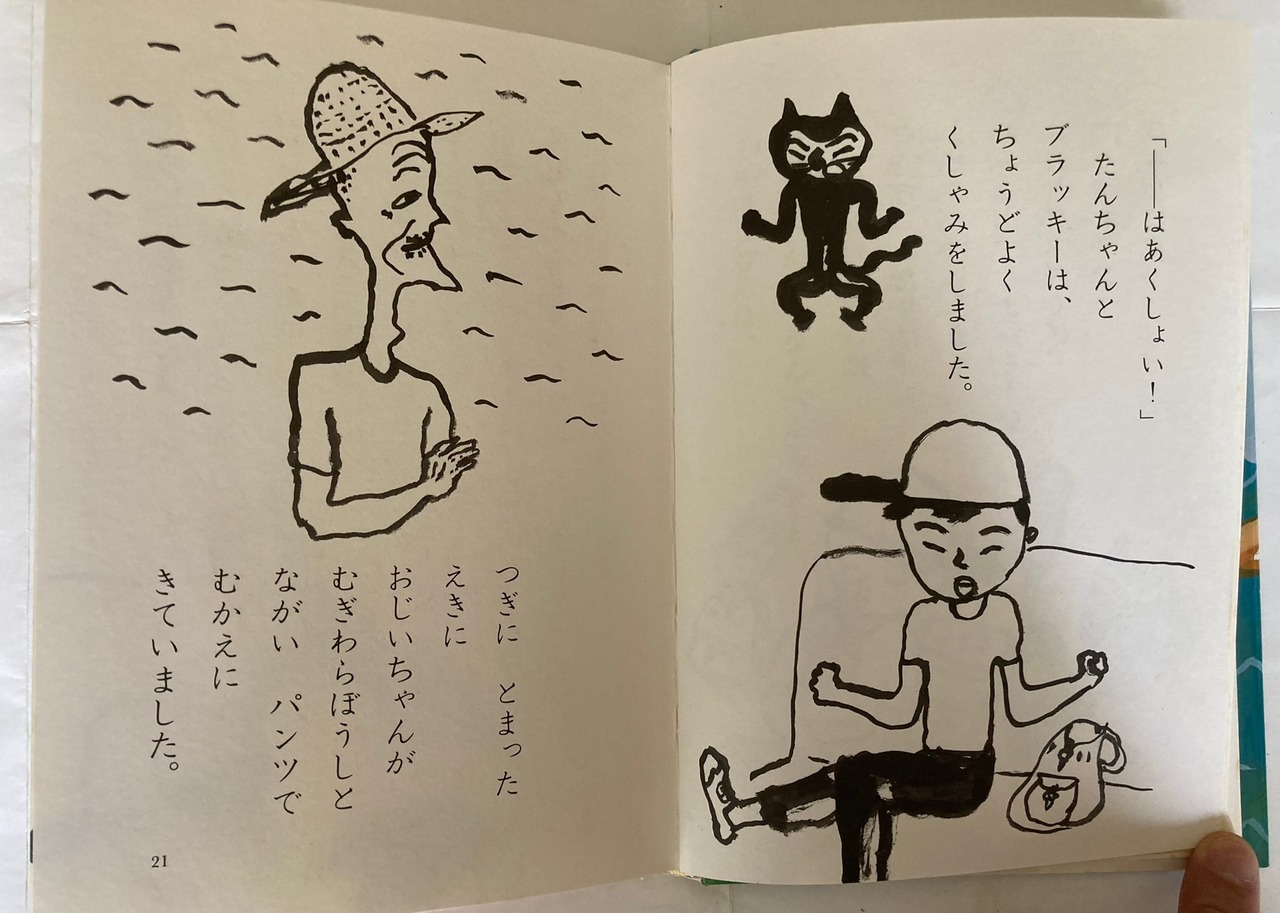 「――はあくしょい！」
たんちゃんと
ブラッキーは、
ちょうどよく
くしゃみをしました。
つぎに　とまった
えきに
おじいちゃんが
むぎわらぼうしと
ながい　パンツで
むかえに
きていました。
21